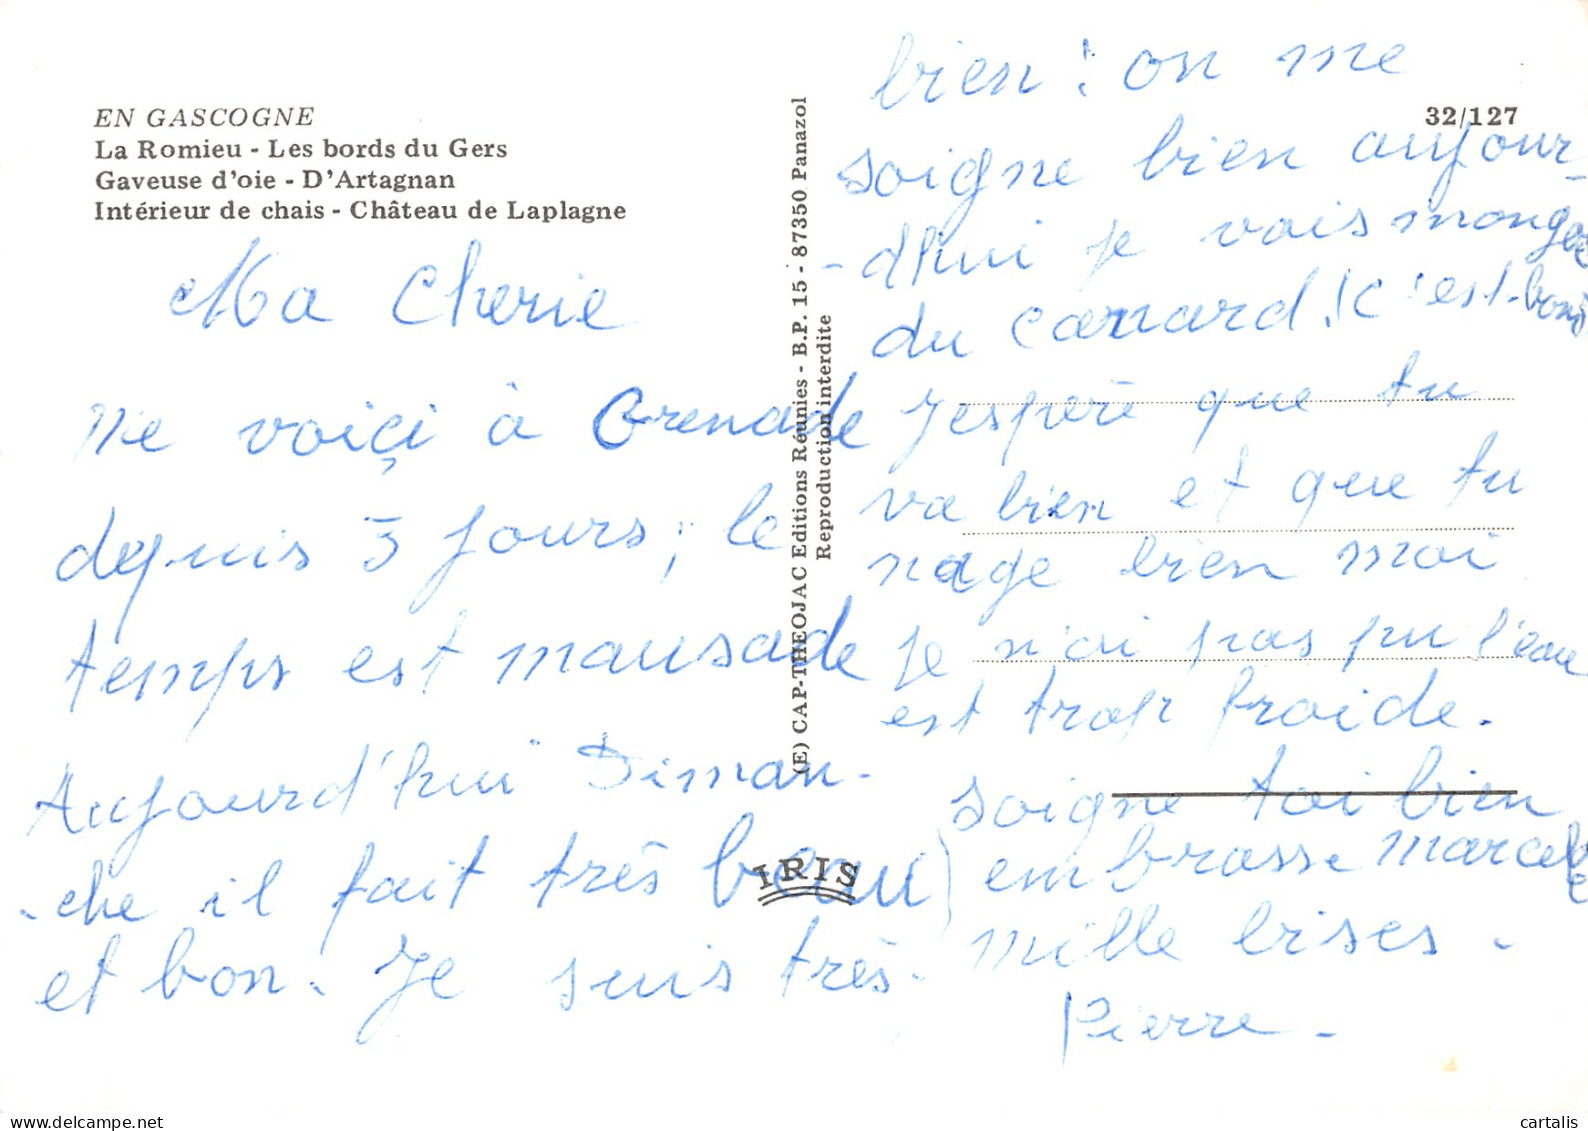 EN GASCOGNE
La Romieu - Les bords du Gers
Gaveuse d'oie - D'Artagnan
Intérieur de chais - Château de Laplagne
Ma Cherie
Me voiçi à Grenade
depuis 3 jours, le
temps est mausade
Aujourd'hui Diman-
-che il fait très beau
et bon. Je suis très
(E) CAP-THEOJAC Editions Réunies - B.P. 15 - 87350 Panazol
Reproduction interdite
IRIS
32/127
bien ! on me
soigne bien aujour-
-d'hui je vais manger
du canard ! C'est bon
J'espère que tu
va bien et que tu
nage bien moi
je n'ai pas pu l'eau
est trop froide.
soigne toi bien
embrasse Marcelle
mille bises -
Pierre -
cartalis
www.delcampe.net